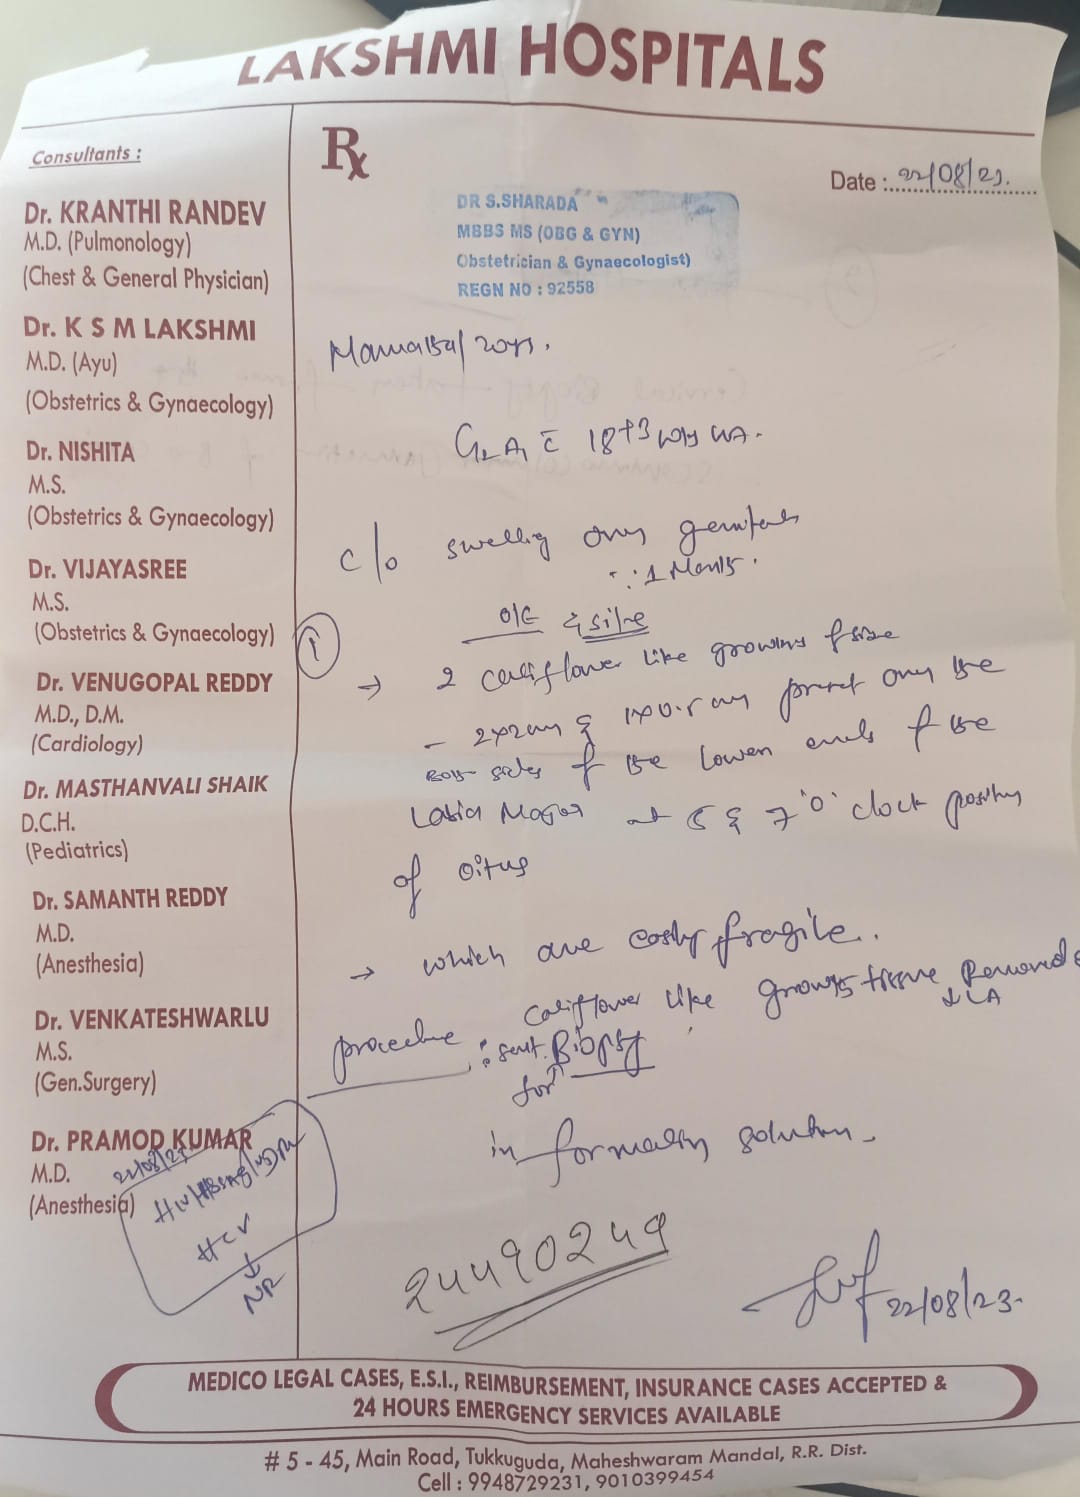 LAKSHMI HOSPITALS
Consultants :
Dr. KRANTHI RANDEV
M.D. (Pulmonology)
(Chest & General Physician)
Dr. K S M LAKSHMI
M.D. (Ayu)
(Obstetrics & Gynaecology)
Dr. NISHITA
M.S.
(Obstetrics & Gynaecology)
Dr. VIJAYASREE
M.S.
(Obstetrics & Gynaecology)
Dr. VENUGOPAL REDDY
M.D., D.M.
(Cardiology)
Dr. MASTHANVALI SHAIK
D.C.H.
(Pediatrics)
Dr. SAMANTH REDDY
M.D.
(Anesthesia)
Dr. VENKATESHWARLU
M.S.
(Gen.Surgery)
Dr. PRAMOD KUMAR
M.D.
(Anesthesia)
22/08/23
HIV/HBSAG/VDRL
HCV
↓
NR
Rx
Date : 22/08/23.
DR S.SHARADA
MBBS MS (OBG & GYN)
Obstetrician & Gynaecologist)
REGN NO : 92558
20yrs.
G2A1 c̄ 18+3 wks
c/o swelling genitals
1 Month.
①
O/E
→ 2 califlower like growths of size
- 2x2cm & 1x0.5 cm present the
Both sides of the Lower ends of the
Labia Major at 5 & 7 'O' clock position
of
→ which are easily fragile.
procedure : califlower like growth tissue Removed
LA
sent for Biopsy
in formalin solution.
24490249
22/08/23.
MEDICO LEGAL CASES, E.S.I., REIMBURSEMENT, INSURANCE CASES ACCEPTED &
24 HOURS EMERGENCY SERVICES AVAILABLE
# 5 - 45, Main Road, Tukkuguda, Maheshwaram Mandal, R.R. Dist.
Cell : 9948729231, 9010399454